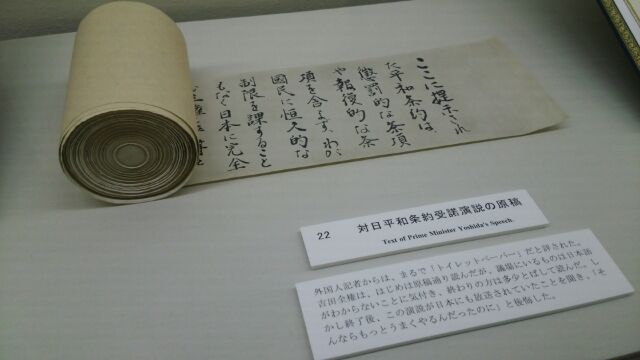 ここに提示され
た平和条約は、
懲罰的な条項
や報復的な条
項を含まず、わが
國民に恒久的な
制限を課すること
もなく日本に完全
22 対日平和条約受諾演説の原稿
Text of Prime Minister Yoshida's Speech.
外国人記者からは、まるで「トイレットペーパー」だと評された。
吉田全権は、はじめは原稿通り読んだが、議場にいるものは日本語
がわからないことに気付き、終わりの方は多少とばして読んだ。し
かし終了後、この演説が日本にも放送されていたことを聞き、「そ
んならもっとうまくやるんだったのに」と後悔した。